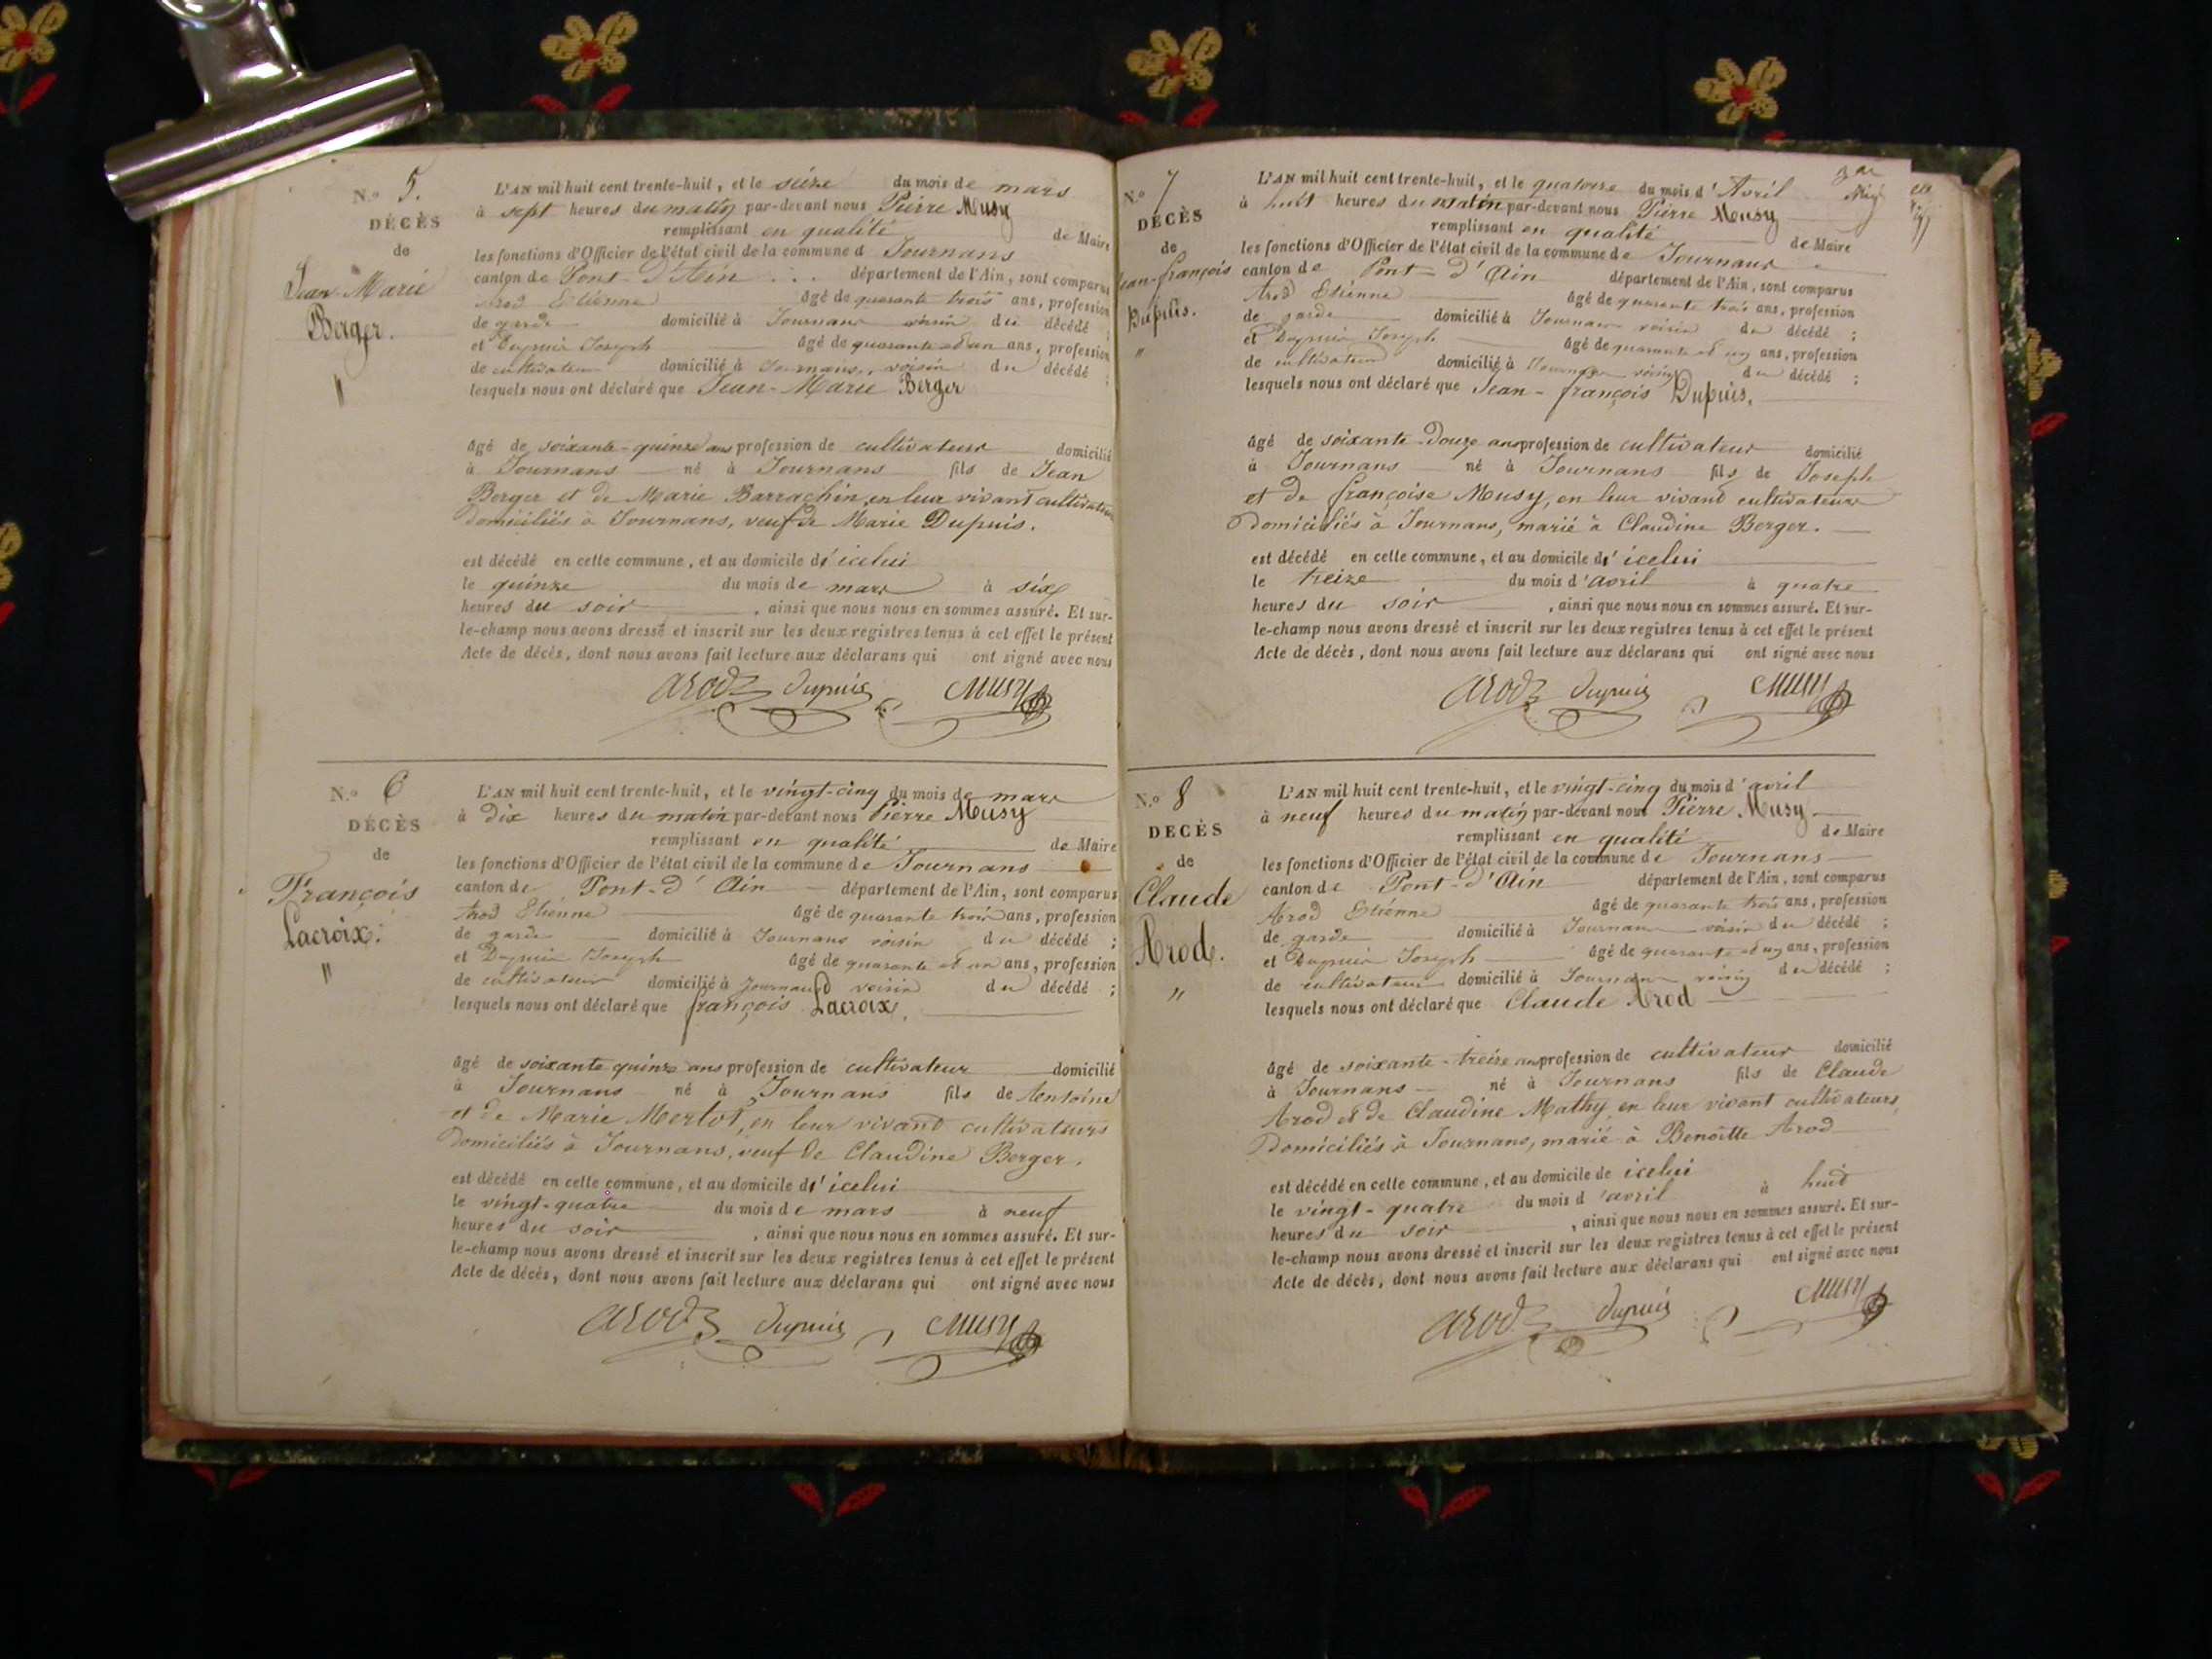 N.o 5.
DÉCÈS
de
Jean-Marie
Berger.
"
L'AN mil huit cent trente-huit, et le seize du mois de mars
à sept heures du matin par-devant nous Pierre Musy
remplissant en qualité de Maire
les fonctions d'Officier de l'état civil de la commune d Journans
canton de Pont-d'Ain département de l'Ain, sont comparus
Arod Etienne âgé de quarante trois ans, profession
de garde domicilié à Journans voisin du décédé ;
et Dupuis Joseph âgé de quarante et un ans, profession
de cultivateur domicilié à Journans, voisin du décédé ;
lesquels nous ont déclaré que Jean-Marie Berger
âgé de soixante-quinze ans profession de cultivateur domicilié
à Journans né à Journans fils de Jean
Berger et de Marie Barrachin en leur vivant cultivateurs
domiciliés à Journans, veuf de Marie Dupuis.
est décédé en cette commune, et au domicile d'icelui
le quinze du mois de mars à six
heures du soir, ainsi que nous nous en sommes assuré. Et sur-
le-champ nous avons dressé et inscrit sur les deux registres tenus à cet effet le présent
Acte de décès, dont nous avons fait lecture aux déclarans qui ont signé avec nous
Arod Dupuis Musy
N.o 6
DÉCÈS
de
François
Lacroix.
"
L'AN mil huit cent trente-huit, et le vingt-cinq du mois de mars
à dix heures du matin par-devant nous Pierre Musy
remplissant en qualité de Maire
les fonctions d'Officier de l'état civil de la commune de Journans
canton de Pont-d'Ain département de l'Ain, sont comparus
Arod Etienne âgé de quarante trois ans, profession
de garde domicilié à Journans voisin du décédé ;
et Dupuis Joseph âgé de quarante et un ans, profession
de cultivateur domicilié à Journans voisin du décédé ;
lesquels nous ont déclaré que françois Lacroix,
âgé de soixante quinze ans profession de cultivateur domicilié
à Journans né à Journans fils de Antoine
et de Marie Merlot, en leur vivant cultivateurs
domiciliés à Journans, veuf de Claudine Berger.
est décédé en cette commune, et au domicile d'icelui
le vingt-quatre du mois de mars à neuf
heures du soir, ainsi que nous nous en sommes assuré. Et sur-
le-champ nous avons dressé et inscrit sur les deux registres tenus à cet effet le présent
Acte de décès, dont nous avons fait lecture aux déclarans qui ont signé avec nous
Arod Dupuis Musy
N.o 7
DÉCÈS
de
Jean-françois
Dupuis.
"
L'AN mil huit cent trente-huit, et le quatorze du mois d'Avril
à huit heures du matin par-devant nous Pierre Musy
remplissant en qualité de Maire
les fonctions d'Officier de l'état civil de la commune de Journans
canton de Pont-d'Ain département de l'Ain, sont comparus
Arod Etienne âgé de quarante trois ans, profession
de garde domicilié à Journans voisin du décédé ;
et Dupuis Joseph âgé de quarante et un ans, profession
de cultivateur domicilié à Journans voisin du décédé ;
lesquels nous ont déclaré que Jean-françois Dupuis,
âgé de soixante-douze ans profession de cultivateur domicilié
à Journans né à Journans fils de Joseph
et de françoise Musy, en leur vivant cultivateurs
Domiciliés à Journans, marié à Claudine Berger.
est décédé en cette commune, et au domicile d'icelui
le treize du mois d'avril à quatre
heures du soir, ainsi que nous nous en sommes assuré. Et sur-
le-champ nous avons dressé et inscrit sur les deux registres tenus à cet effet le présent
Acte de décès, dont nous avons fait lecture aux déclarans qui ont signé avec nous
Arod Dupuis Musy
N.o 8
DÉCÈS
de
Claude
Arod.
"
L'AN mil huit cent trente-huit, et le vingt-cinq du mois d'avril
à neuf heures du matin par-devant nous Pierre Musy
remplissant en qualité de Maire
les fonctions d'Officier de l'état civil de la commune de Journans
canton de Pont-d'Ain département de l'Ain, sont comparus
Arod Etienne âgé de quarante trois ans, profession
de garde domicilié à Journans voisin du décédé ;
et Dupuis Joseph âgé de quarante et un ans, profession
de cultivateur domicilié à Journans voisin du décédé ;
lesquels nous ont déclaré que Claude Arod
âgé de soixante-treize ans profession de cultivateur domicilié
à Journans né à Journans fils de Claude
Arod et de Claudine Mathy, en leur vivant cultivateurs,
Domiciliés à Journans, marié à Benoitte Arod
est décédé en cette commune, et au domicile de icelui
le vingt-quatre du mois d'avril à huit
heures du soir, ainsi que nous nous en sommes assuré. Et sur-
le-champ nous avons dressé et inscrit sur les deux registres tenus à cet effet le présent
Acte de décès, dont nous avons fait lecture aux déclarans qui ont signé avec nous
Arod Dupuis Musy